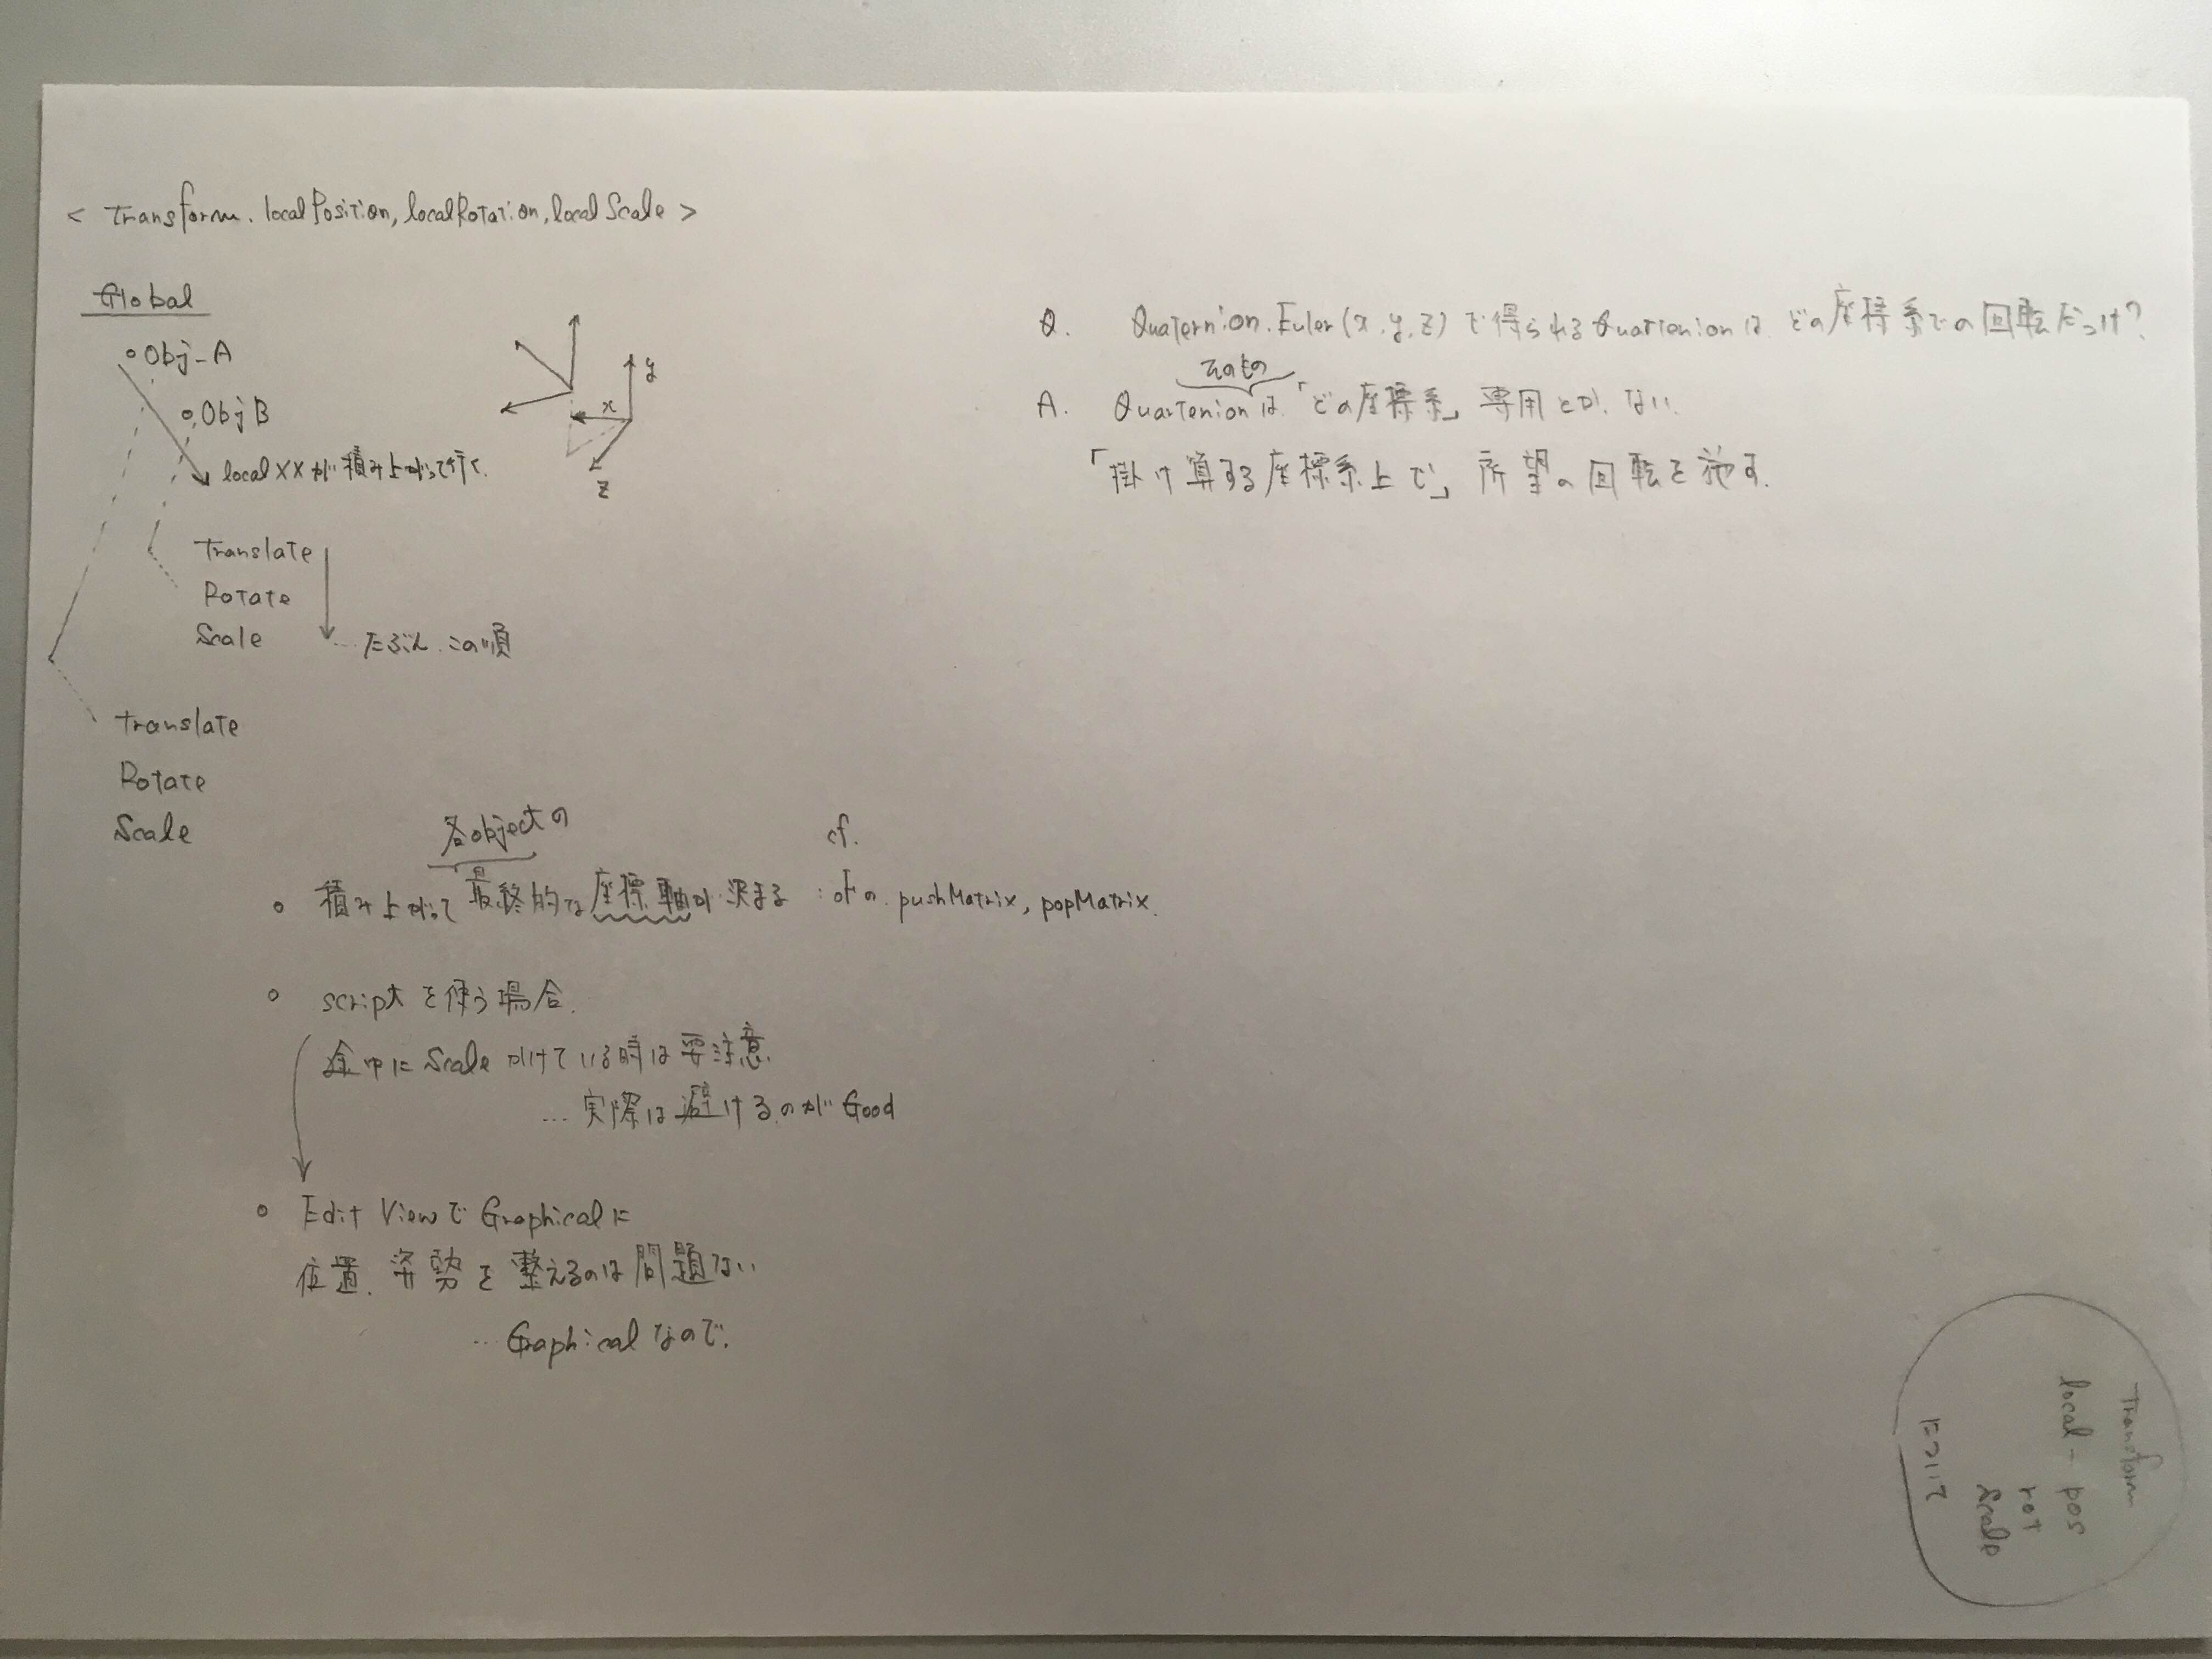 < Transform. localPosition, localRotation, localScale >
Global
Obj-A
ObjB
local XX が 積み上がって行く.
y
x
z
Translate
Rotate
Scale
... たぶん.この順
Translate
Rotate
Scale
各objectの
cf.
積み上がって最終的な座標軸が決まる : ofの pushMatrix, popMatrix.
scriptを使う場合.
途中に Scale かけている時は要注意.
... 実際は避けるのが Good
Edit Viewで Graphicalに
位置. 姿勢を整えるのは問題ない
... Graphicalなので.
Q. Quaternion.Euler(x,y,z)で得られるQuartenionは どの座標系での回転だっけ?
そのもの
A. Quartenionは.「どの座標系」専用とか.ない.
「掛け算する座標系上で」 所望の回転を施す.
Transform
local - pos
rot
Scale
について